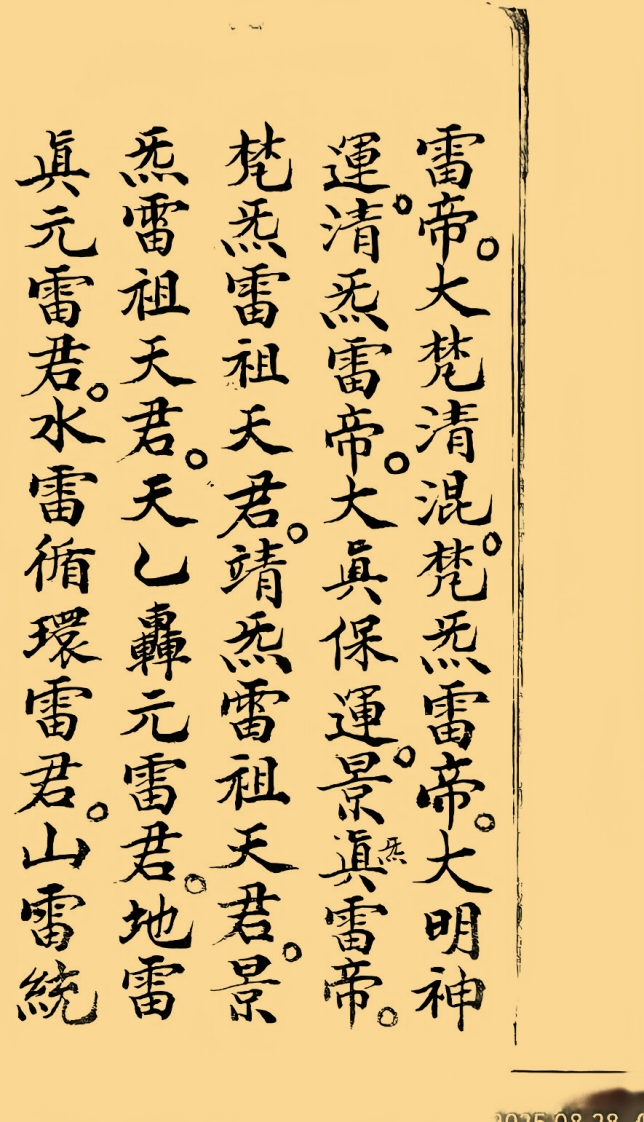 雷帝。大梵清混。梵炁雷帝。大明神
運。清炁雷帝。大眞保運。景眞炁雷帝。
梵炁雷祖天君。靖炁雷祖天君。景
炁雷祖天君。天乙轟元雷君。地雷
眞元雷君。水雷循環雷君。山雷統